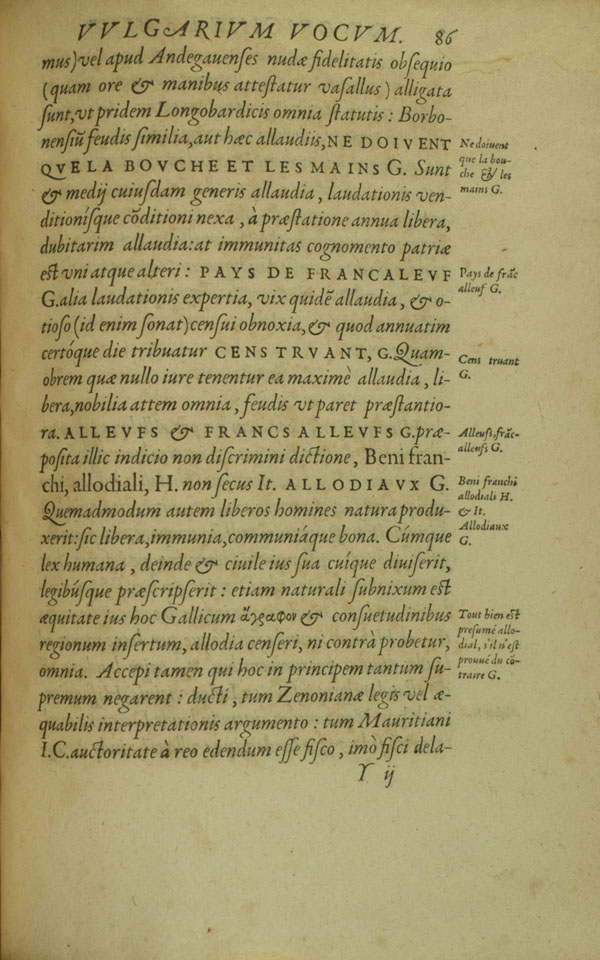 VVLGARIVM VOCVM. 86
mus) vel apud Andegauenses nudæ fidelitatis obsequio
(quam ore & manibus attestatur vasallus) alligata
sunt, vt pridem Longobardicis omnia statutis: Borbo-
nensiũ feudis similia, aut hæc allaudiis, NE DOIVENT
QVE LA BOVCHE ET LES MAINS G. Sunt
& medij cuiusdam generis allaudia, laudationis ven-
ditionísque cõditioni nexa, à præstatione annua libera,
dubitarim allaudia: at immunitas cognomento patriæ
est vni atque alteri: PAYS DE FRANCALEVF
G. alia laudationis expertia, vix quidẽ allaudia, & o-
tioso (id enim sonat) censui obnoxia, & quod annuatim
certóque die tribuatur CENS TRVANT, G. Quam-
obrem quæ nullo iure tenentur ea maximè allaudia, li-
bera, nobilia attem omnia, feudis vt paret præstantio-
ra. ALLEVFS & FRANCS ALLEVFS G. præ-
posita illic indicio non discrimini dictione, Beni fran-
chi, allodiali, H. non secus It. ALLODIAVX G.
Quemadmodum autem liberos homines natura produ-
xerit: sic libera, immunia, communiáque bona. Cúmque
lex humana, deinde & ciuile ius sua cuíque diuiserit,
legibúsque præscripserit: etiam naturali subnixum est
æquitate ius hoc Gallicum ἄγραφον & consuetudinibus
regionum insertum, allodia censeri, ni contrà probetur,
omnia. Accepi tamen qui hoc in principem tantum su-
premum negarent: ducti, tum Zenonianæ legis vel æ-
quabilis interpretationis argumento: tum Mauritiani
I.C. auctoritate à reo edendum esse fisco, imò fisci dela-
Y ij
Ne doiuent
que la bou-
che & les
mains G.
Pays de frãc
alleuf G.
Cens truant
G.
Alleufs, frãc-
alleufs G.
Beni franchi
allodiali H.
& It.
Allodiaux
G.
Tout bien est
presumé allo-
dial, s'il n'est
prouué du cõ-
traire G.